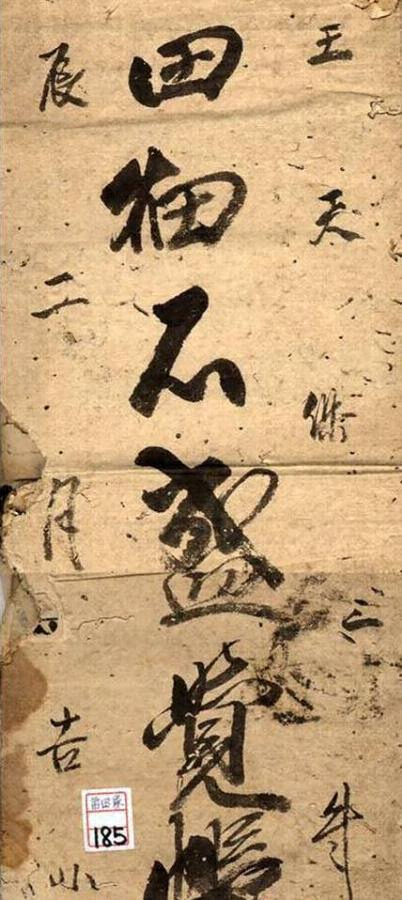 壬天保三年
田畑石盛覚帳
辰二月吉
185